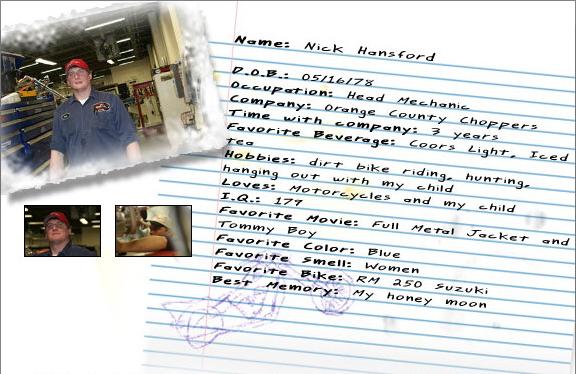 Name: Nick Hansford
D.O.B.: 05/16/78
Occupation: Head Mechanic
Company: Orange County Choppers
Time with company: 3 years
Favorite Beverage: Coors Light, Iced
tea
Hobbies: dirt bike riding, hunting,
hanging out with my child
Loves: Motorcycles and my child
I.Q.: 177
Favorite Movie: Full Metal Jacket and
Tommy Boy
Favorite Color: Blue
Favorite Smell: Women
Favorite Bike: RM 250 Suzuki
Best Memory: My honey moon